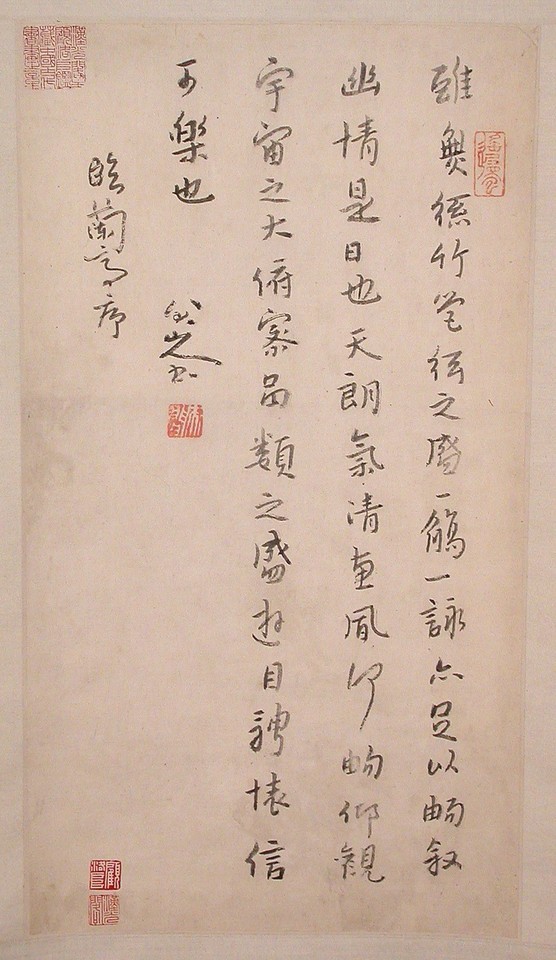 雖無絲竹管絃之盛一觴一詠亦足以暢叙
幽情是日也天朗氣清惠風和暢仰觀
宇宙之大俯察品類之盛遊目騁懷信
可樂也
八大山人書
臨蘭亭序